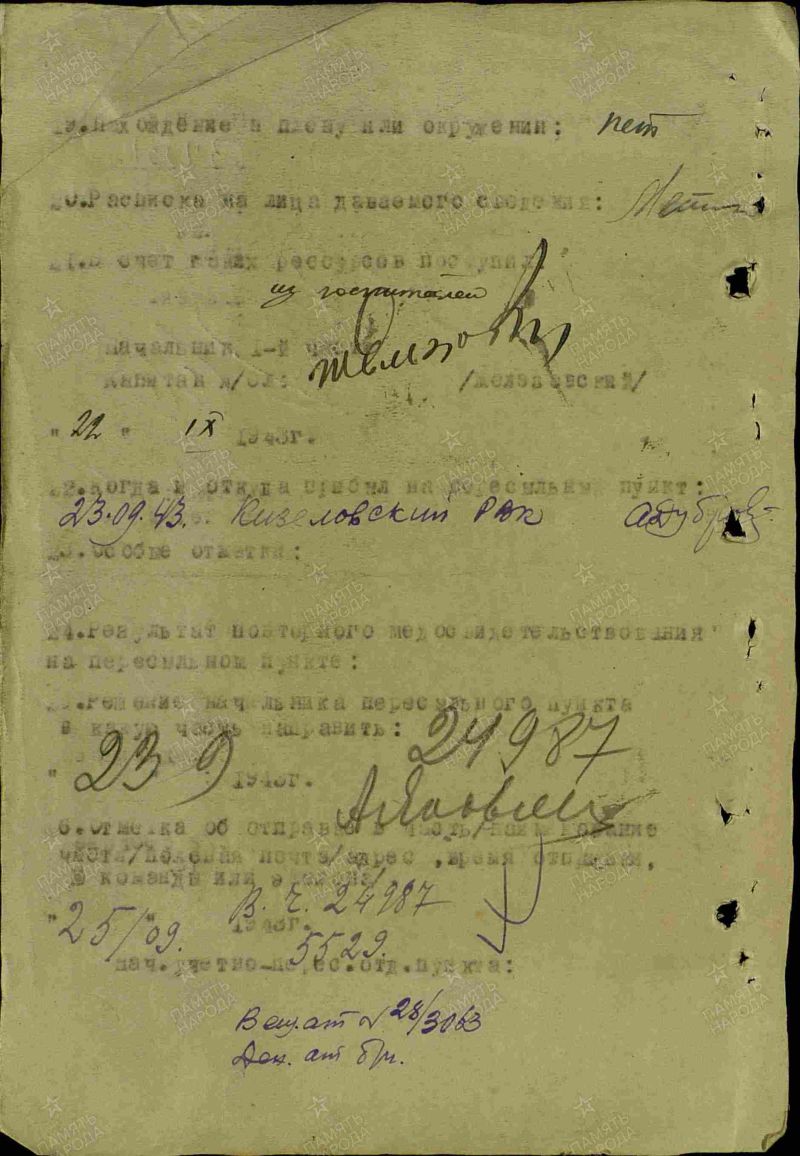 19.Нахождение в плену или окружении: нет
20.Расписка на лица даваемого сведения:
21.В счет каких рессурсов поступил
из госпиталей
Начальник 1-й части
Капитан и/сл: /Желязовский/
"22" IX 1943г.
22.Когда и откуда прибыл на пересыльный пункт:
23.09.43. Кизеловский РВК
23.Особые отметки:
24.Результат повторного медосвидетельствования
на пересыльном пункте:
25.Решение начальника пересыльного пункта
в какую часть направить: 24987
" 23 9 1943г.
26.Отметка об отправке в часть/наименование
части/полевая почта/адрес, время отправки,
№ команды или эшелона/
В.ч. 24987
"25/09. 1943г.
5529.
Нач.учетно-перес.отд.пункта:
Вещ.ат № 28/3063
Ден. ат